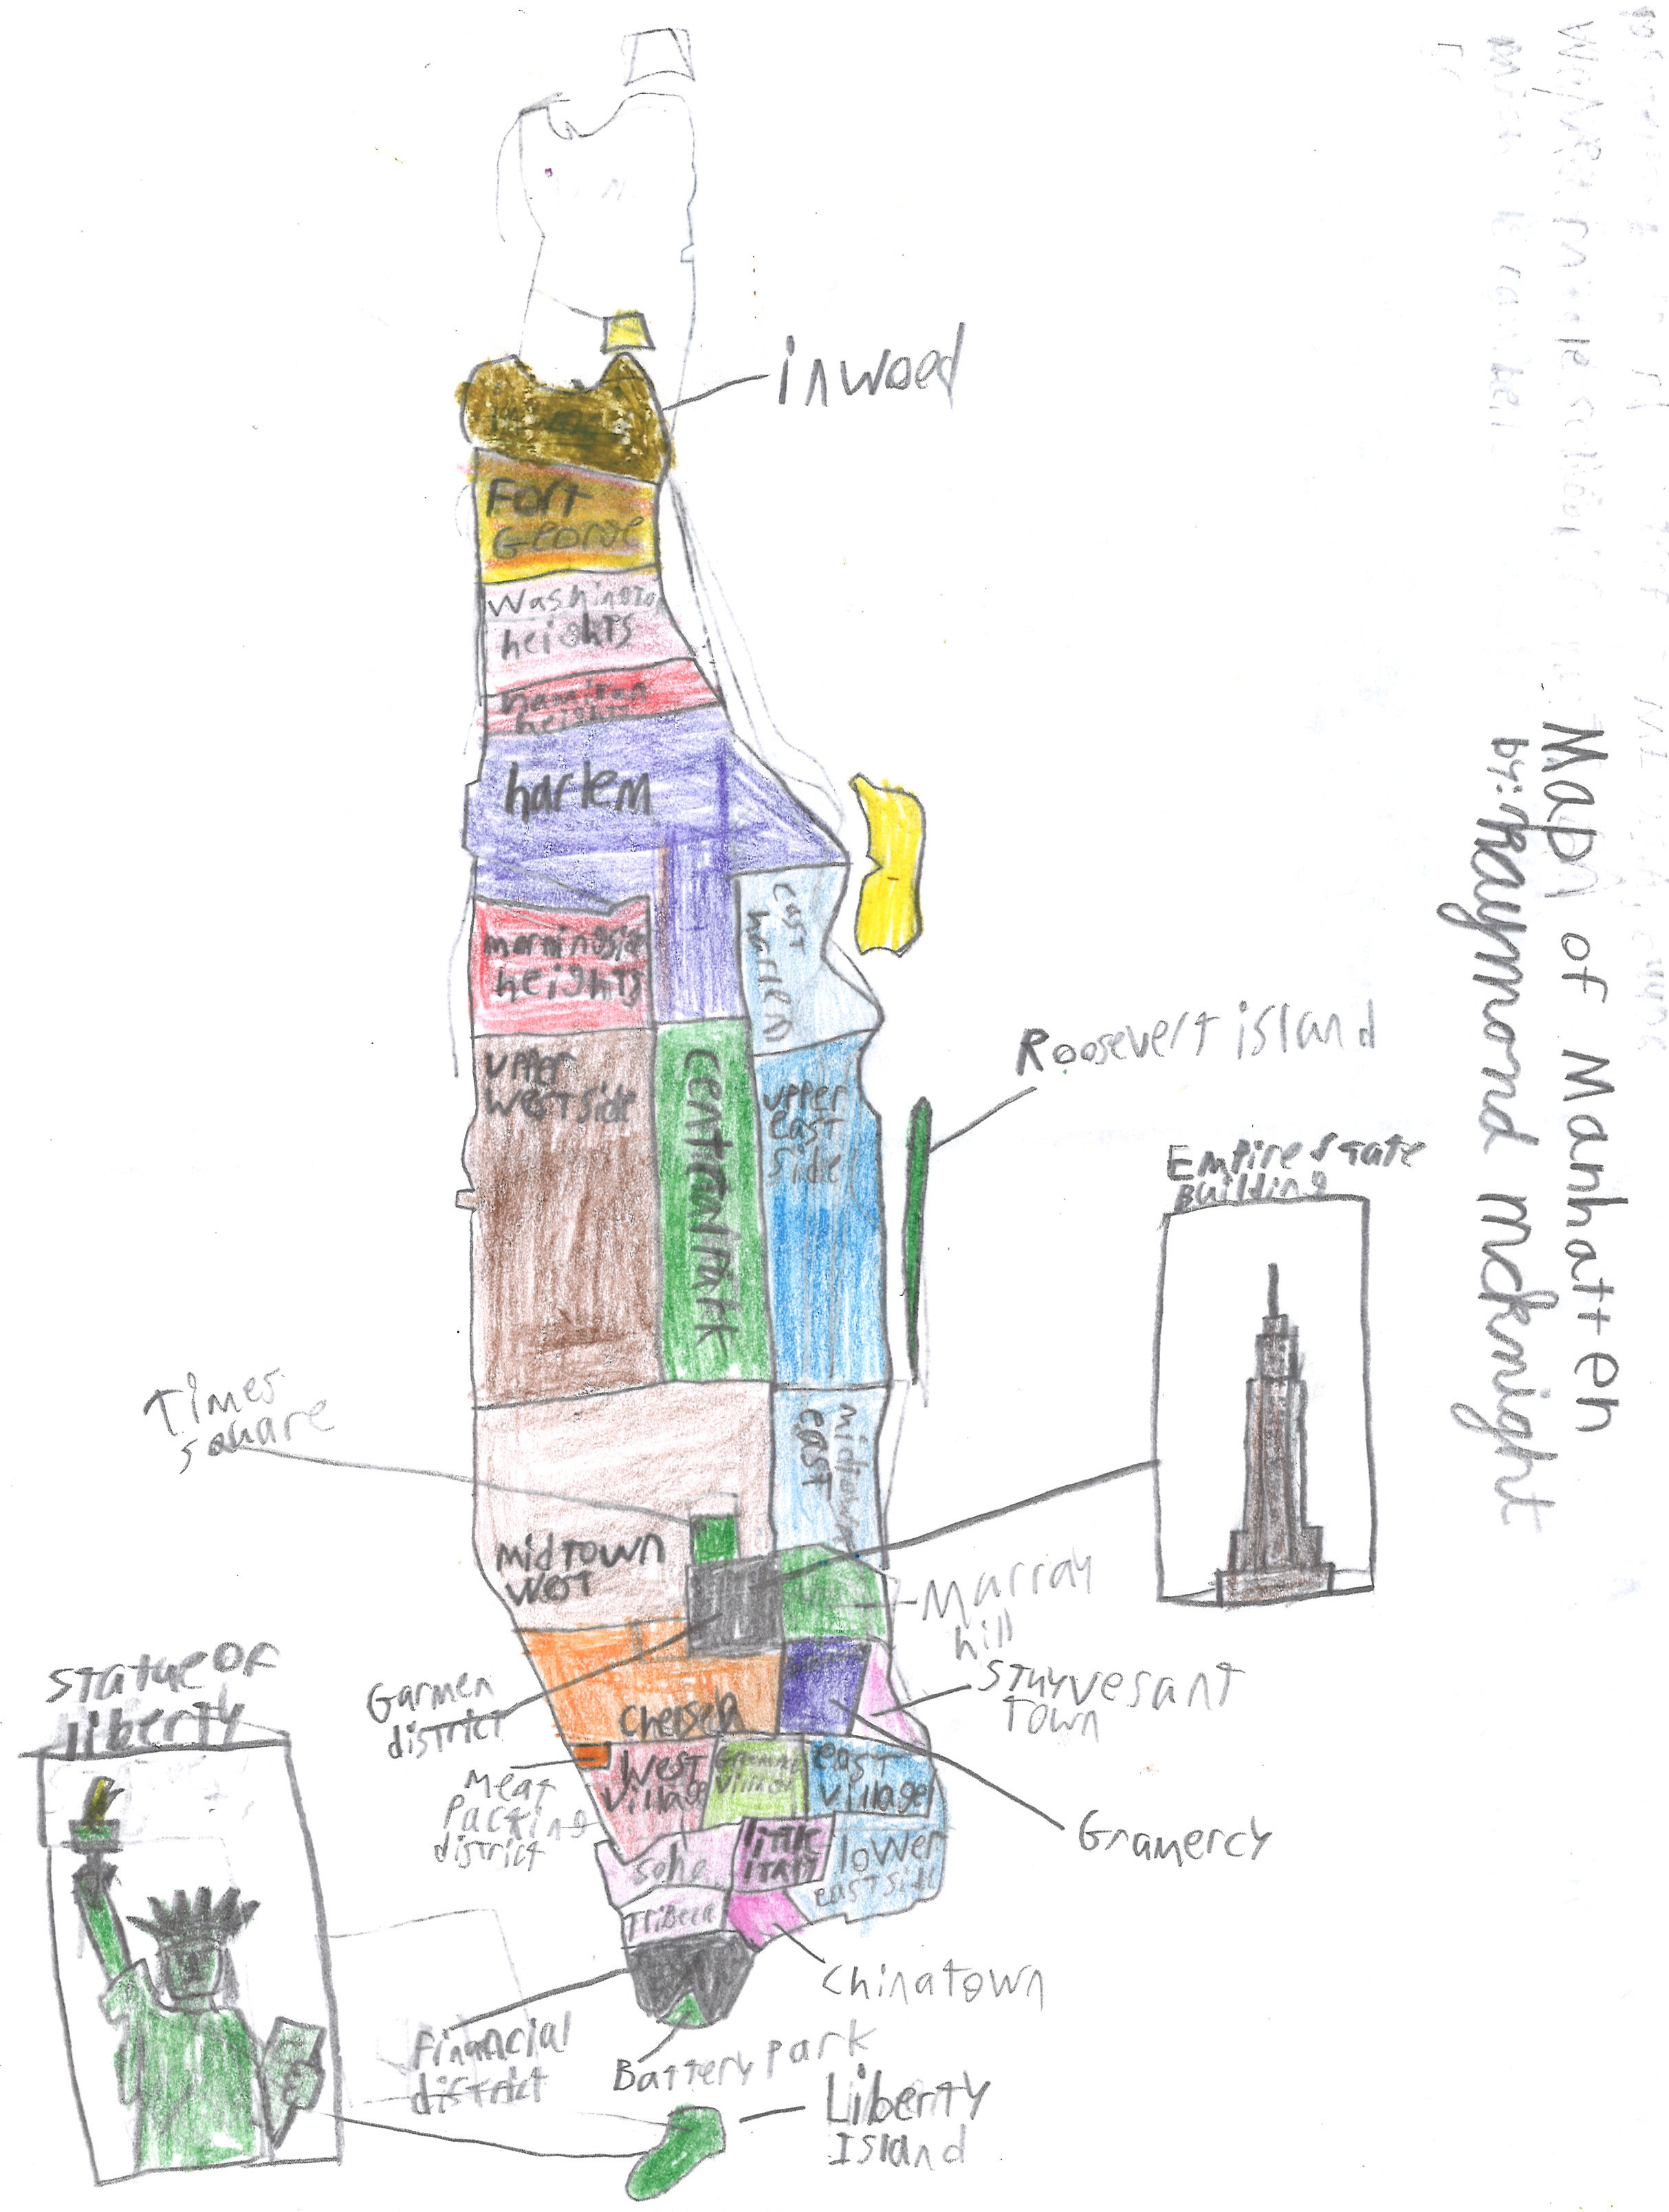 Map of Manhatteh
by: Raymond McKnight
inwood
Fort
George
Washington
heights
hamilton
heights
harlem
east
harlem
morningside
heights
upper
west side
centralpark
upper
east
side
Roosevert island
Empire State
Building
Times
square
midtown
east
midtown
west
Murray
hill
Garmen
district
Stuyvesant
Town
chelseh
Statue OF
liberty
Meat
Packing
district
West
village
east
village
Gramercy
soho
little
italy
lower
east side
TriBeca
chinatown
Financial
district
Battery park
Liberty
Island